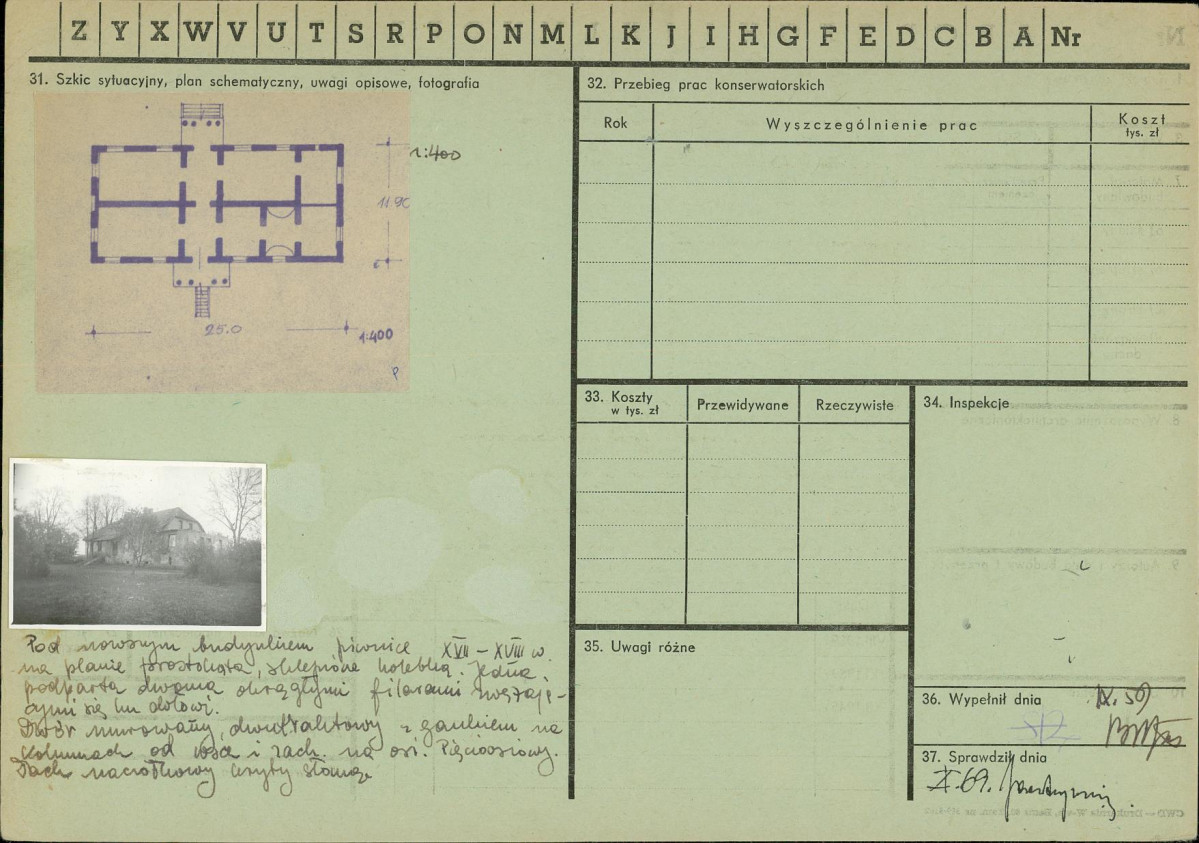 Z Y X W V U T S R P O N M L K J I H G F E D C B A Nr
31. Szkic sytuacyjny, plan schematyczny, uwagi opisowe, fotografia
1:400
11.90
25.0
1:400
P
Pod nowszym budynkiem piwnice XVII – XVIII w.
na planie prostokąta, sklepione kolebką. Jedna
podparta dwoma okrągłymi filarami zwężają-
cymi się ku dołowi.
Dwór murowany, dwutraktowy z gankiem na
kolumnach od wsch. i zach. na osi. Pięcioosiowy.
Dach naczółkowy kryty słomą
32. Przebieg prac konserwatorskich
Rok
Wyszczególnienie prac
Koszt
tys. zł
33. Koszty
w tys. zł
Przewidywane
Rzeczywiste
34. Inspekcje
35. Uwagi różne
36. Wypełnił dnia
IX. 59
37. Sprawdził dnia
X. 69.